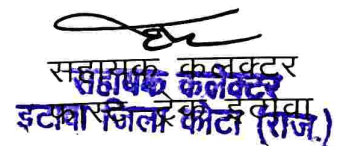 सहायक कलक्टर
सहायक कलेक्टर
इटावा जिला कोटा (राज.)